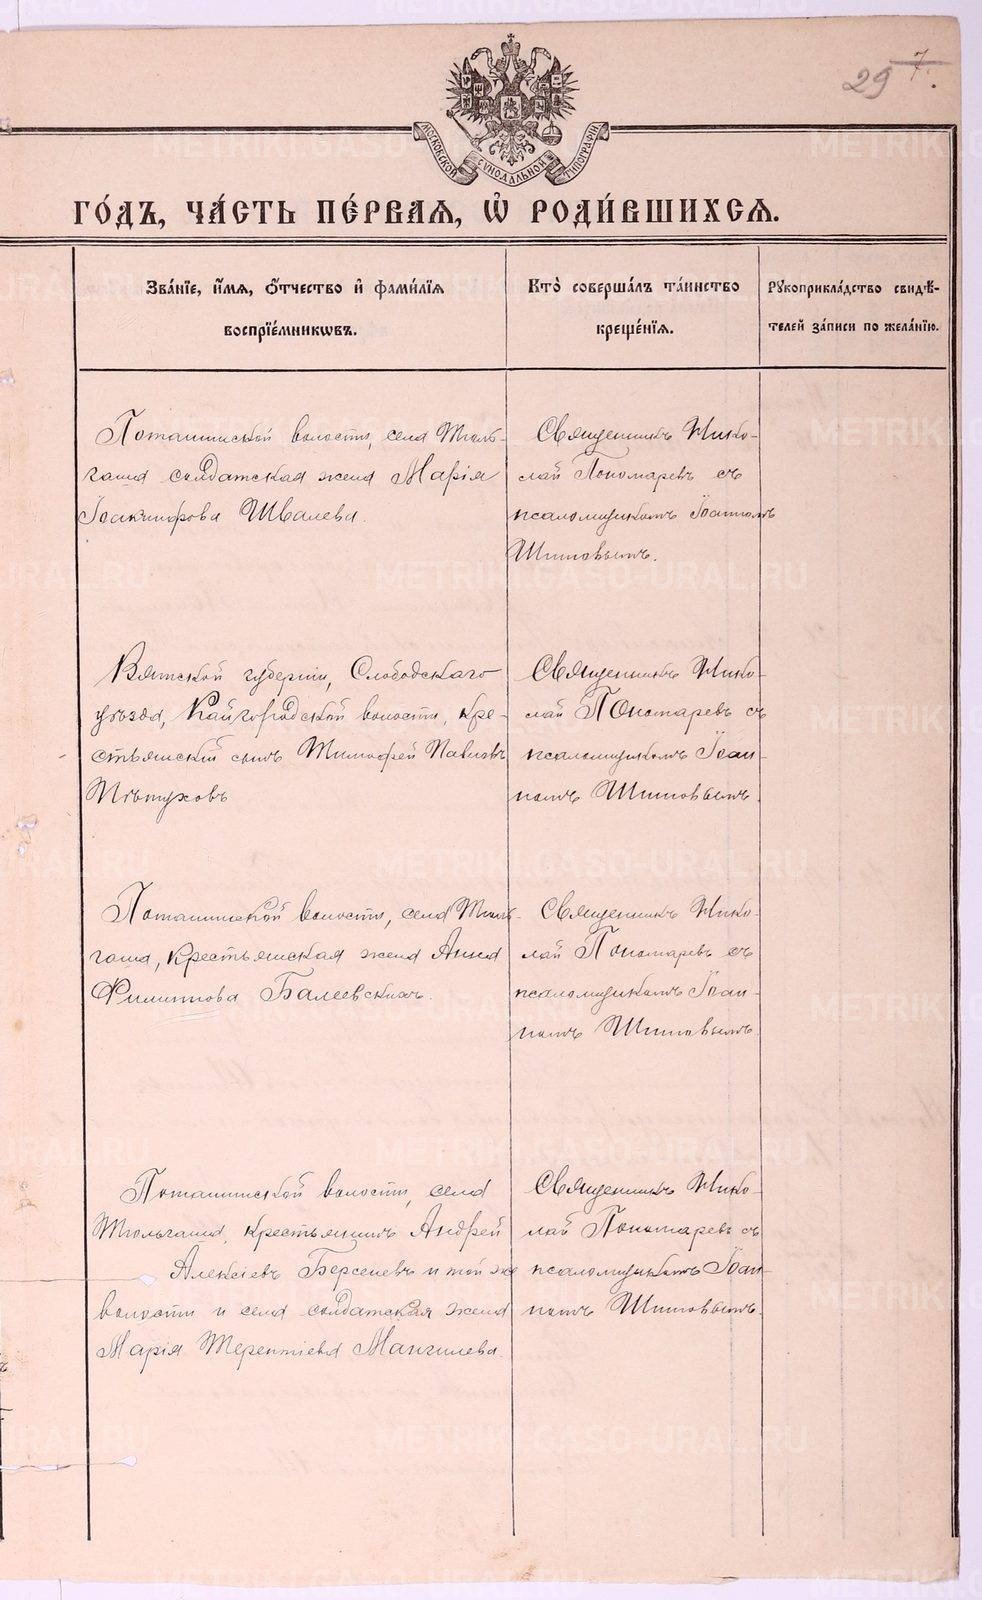 29 7.
МОСКОВСКОЙ СѴНОДАЛЬНОЙ ТИПОГРАФІИ
ГО́ДЪ, ЧА́СТЬ ПЕ́РВАѦ, Ѡ҆ РОДИ́ВШИХСѦ.
Зва́нїе, и҆́мѧ, ѻ҆́тчество и҆ фами́лїѧ
воспрїе́мникѡвъ.
Кто̀ соверша́лъ та́инство
креще́нїѧ.
Рꙋкоприкла́дство свидѣ́-
телей за́писи по жела́нїю.
Поташинской волости, села Тюль-
гаша солдатская жена Марія
Іоакинфова Швалева.
Священникъ Нико-
лай Пономаревъ съ
псаломщикомъ Іоанномъ
Шитовымъ.
Вятской губерніи, Слободскаго
уѣзда, Кайгородской волости, кре-
стьянскій сынъ Тимофей Павловъ
Пѣтуховъ
Священникъ Нико-
лай Пономаревъ съ
псаломщикомъ Іоан-
номъ Шитовымъ.
Поташинской волости, села Тюль-
гаша, крестьянская жена Анна
Филиппова Балеевскихъ.
Священникъ Нико-
лай Пономаревъ съ
псаломщикомъ Іоан-
номъ Шитовымъ.
Поташинской волости, села
Тюльгаша, крестьянинъ Андрей
Алексіевъ Берсеневъ и той же
волости и села солдатская жена
Марія Терентіева Мангилева.
Священникъ Нико-
лай Пономаревъ съ
псаломщикомъ Іоан-
номъ Шитовымъ.
METRIKI.GASO-URAL.RU